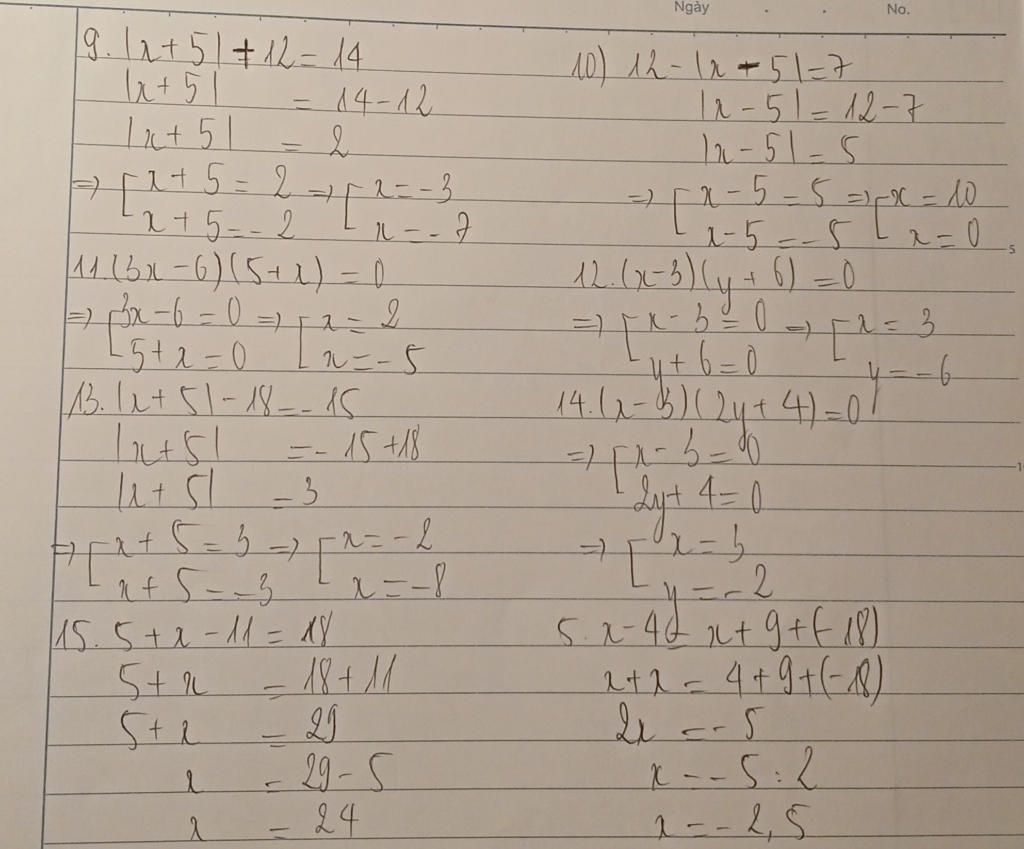 Ngày . . No.
9. |x+5| + 12 = 14
|x+5| = 14-12
|x+5| = 2
=> [x+5 = 2 => [x = -3
x+5 = -2 x = -7
10) 12 - |x - 5| = 7
|x - 5| = 12 - 7
|x - 5| = 5
=> [x - 5 = 5 => [x = 10
x - 5 = -5 x = 0
5
11. (3x-6)(5+x) = 0
=> [3x-6 = 0 => [x = 2
5+x = 0 x = -5
12. (x-3)(y+6) = 0
=> [x - 3 = 0 => [x = 3
y+6 = 0 y = -6
13. |x+5| - 18 = -15
|x+5| = -15+18
|x+5| = 3
=> [x+5 = 3 => [x = -2
x+5 = -3 x = -8
14. (x-3)(2y+4) = 0
=> [x - 3 = 0
2y+4 = 0
=> [x = 3
y = -2
15. 5+x-11 = 18
5+x = 18+11
5+x = 29
x = 29-5
x = 24
5. x-4 = - x+9+(-18)
x+x = 4+9+(-18)
2x = -5
x = -5 : 2
x = -2,5